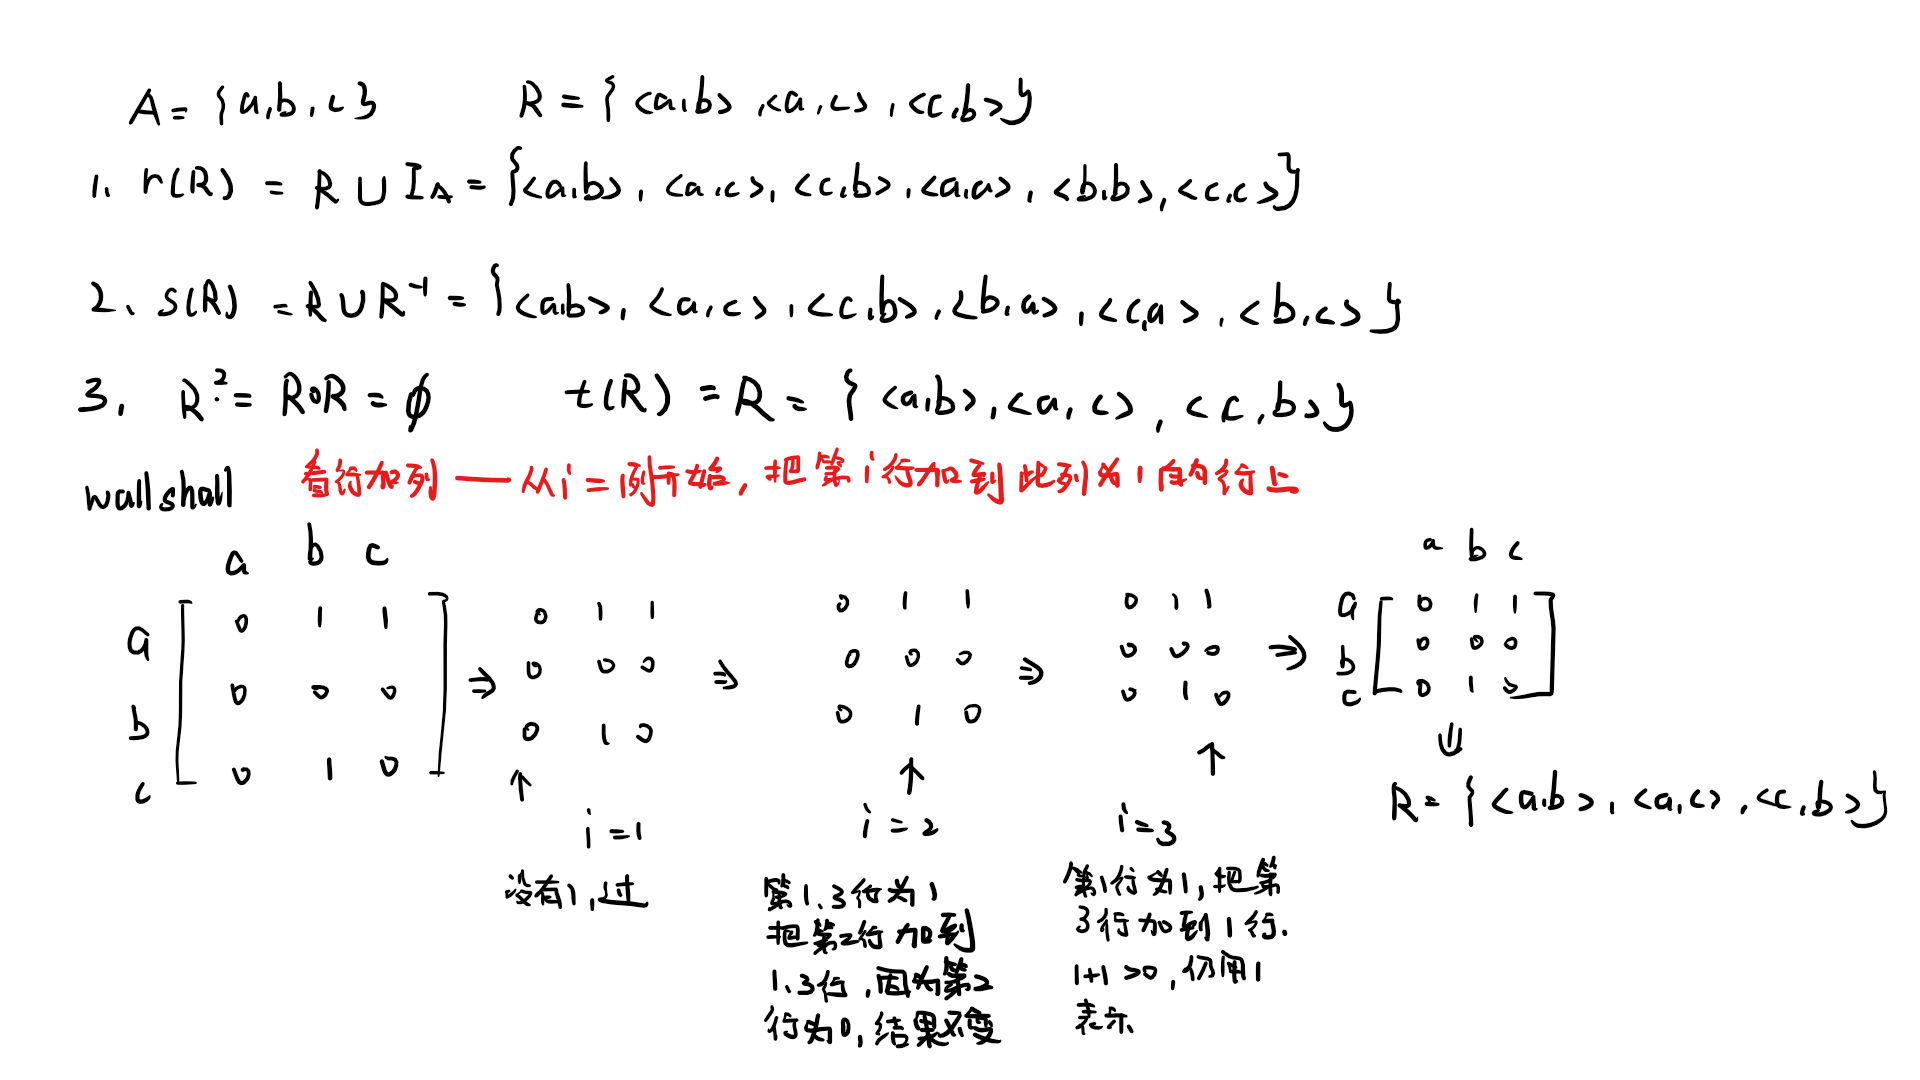 A = {a,b,c}  R = {<a,b>,<a,c>,<c,b>}
1. r(R) = R ∪ I_A = {<a,b>, <a,c>, <c,b>, <a,a>, <b,b>, <c,c>}
2、s(R) = R ∪ R⁻¹ = {<a,b>, <a,c>, <c,b>, <b,a>, <c,a>, <b,c>}
3. R² = R∘R = ϕ  t(R) = R = {<a,b>, <a,c>, <c,b>}
wallshall  看行加列 —— 从i=1列开始,把第i行加到此列为1的行上
a b c
a 0 1 1
b 0 0 0
c 0 1 0
⇒
0 1 1
0 0 0
0 1 0
↑
i=1
没有1,过
⇒
0 1 1
0 0 0
0 1 0
↑
i=2
第1、3行为1
把第2行加到
1、3行,因为第2
行为0,结果不变
⇒
0 1 1
0 0 0
0 1 0
↑
i=3
第1行为1,把第
3行加到1行.
1+1>0,仍用1
表示
⇒
a b c
a 0 1 1
b 0 0 0
c 0 1 0
⇓
R = {<a,b>, <a,c>, <c,b>}